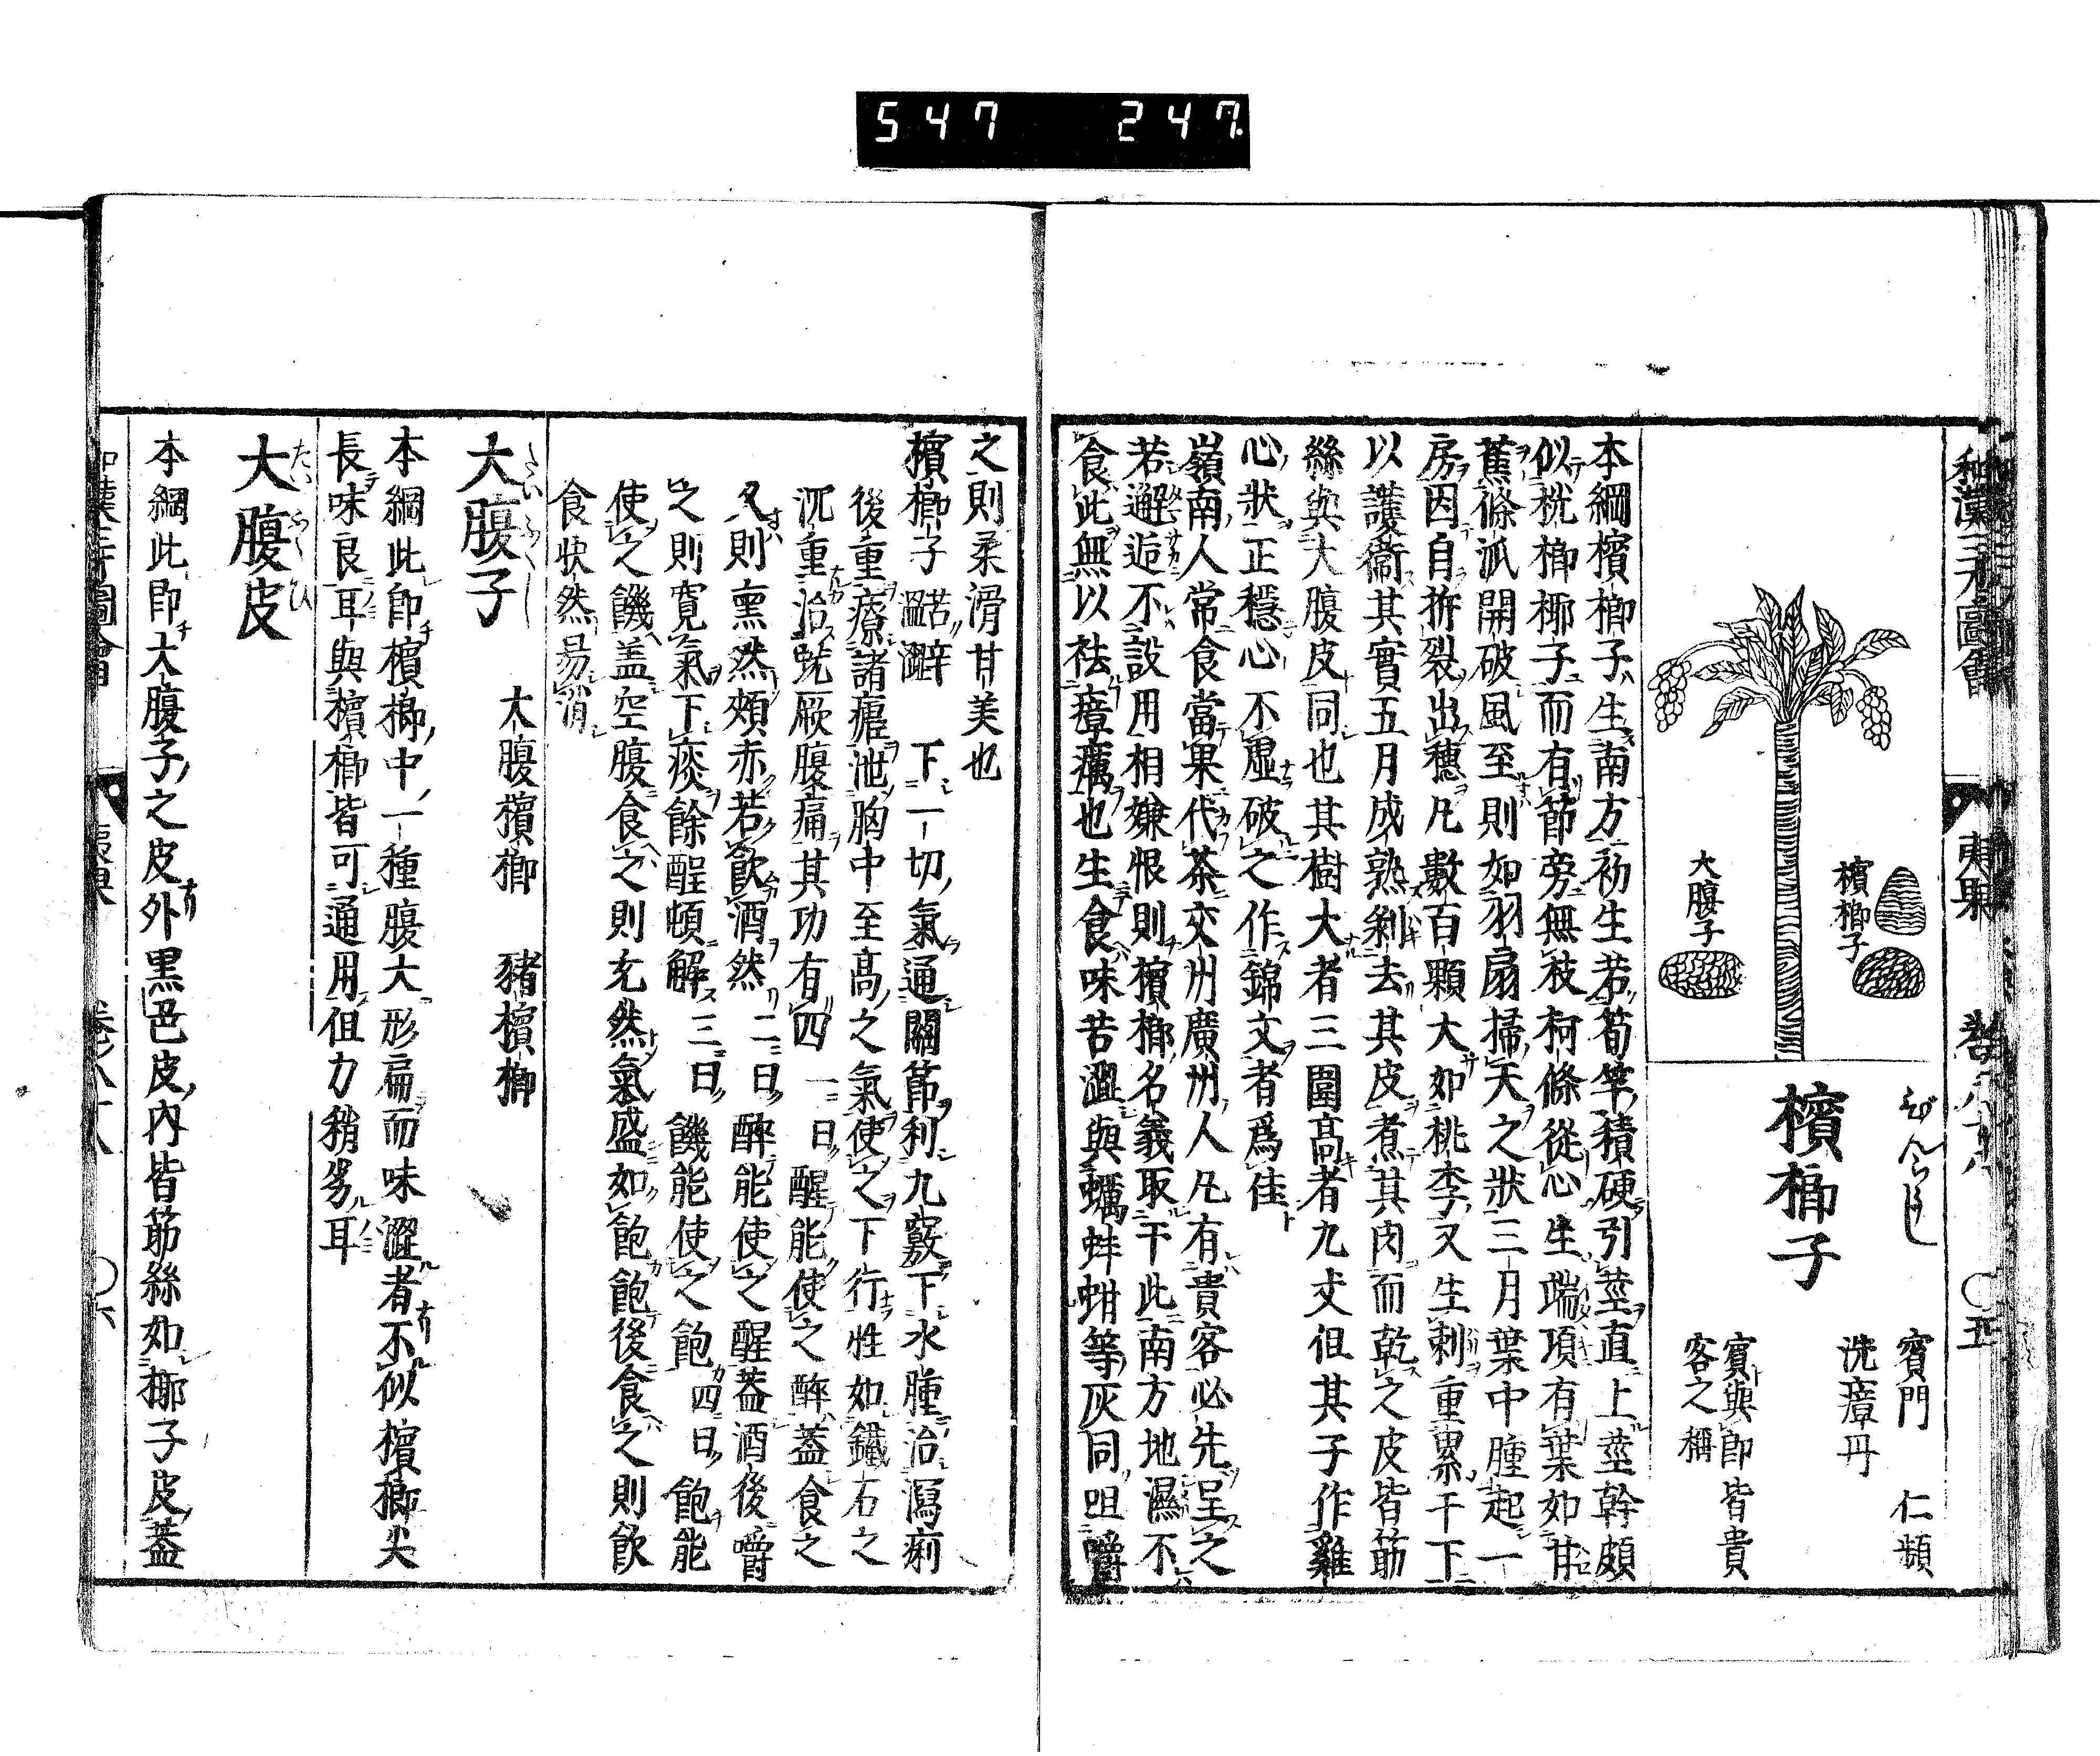 547 247
和漢三才圖會 夷果 卷八十八 〇五
檳榔子
びんらうし
賓門 仁頻
洗瘴丹
賓與郎皆貴
客之稱
檳榔子
大腹子
本綱檳榔子生南方初生若筍竿積硬引莖直上莖幹頗
似桄榔椰子而有節旁無枝柯條從心生端頂有葉如甘
蕉條派開破風至則如羽扇掃天之狀三月葉中腫起一
房因自拆裂出穗凡數百顆大如桃李又生刺重累于下
以護衞其實五月成熟剝去其皮煮其肉而乾之皮皆筋
絲與大腹皮同也其樹大者三圍高者九丈但其子作雞
心狀正穩心不虛破之作錦文者爲佳
嶺南人常食當果代茶交州廣州人凡有貴客必先呈之
若邂逅不設用相嫌恨則檳榔名義取于此南方地濕不
食此無以祛瘴癘也生食味苦澀與蠣蚌蚶等灰同咀嚼
之則柔滑甘美也
檳榔子 苦辛溫澀 下一切氣通關節利九竅下水腫治瀉痢
後重療諸瘧泄胸中至高之氣使之下行性如鐵石之
沉重治蚘厥腹痛其功有四 一曰醒能使之醉蓋食之
久則熏然頰赤若飲酒然 二曰醉能使之醒蓋酒後嚼
之則寬氣下痰餘酲頓解 三曰饑能使之飽 四曰飽能
使之饑蓋空腹食之則充然氣盛如飽飽後食之則飲
食快然易消
大腹子
たいふくし
大腹檳榔 豬檳榔
本綱此卽檳榔中一種腹大形扁而味澀者不似檳榔尖
長味良耳與檳榔皆可通用但力稍劣耳
大腹皮
たいふくひ
本綱此卽大腹子之皮外黒色皮內皆筋絲如椰子皮蓋
和漢三才圖會 夷果 卷八十八 〇六